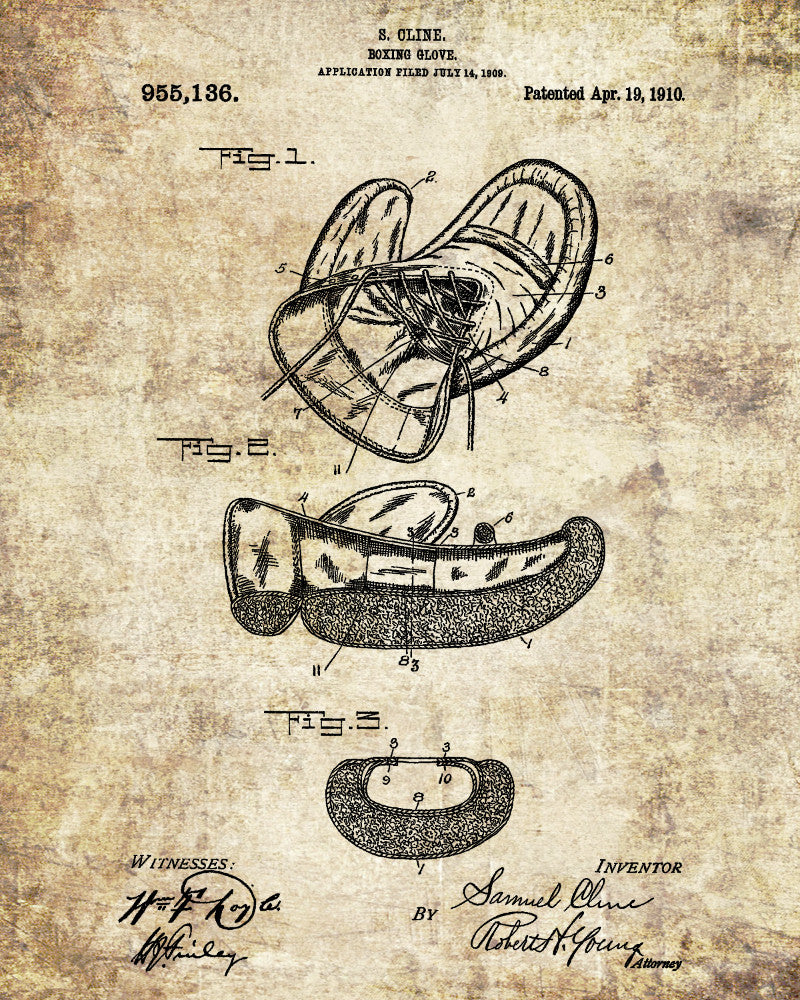 S. CLINE.
BOXING GLOVE.
APPLICATION FILED JULY 14, 1909.
955,136.
Patented Apr. 19, 1910.
Fig. 1.
2.
5
6
3
1
8
4
7
11
Fig. 2.
4
2
3
3
6
1
11
8
3
Fig. 3.
3
3
9
10
8
1
WITNESSES:
INVENTOR
Samuel Cline
BY
Robert W. Young
Attorney